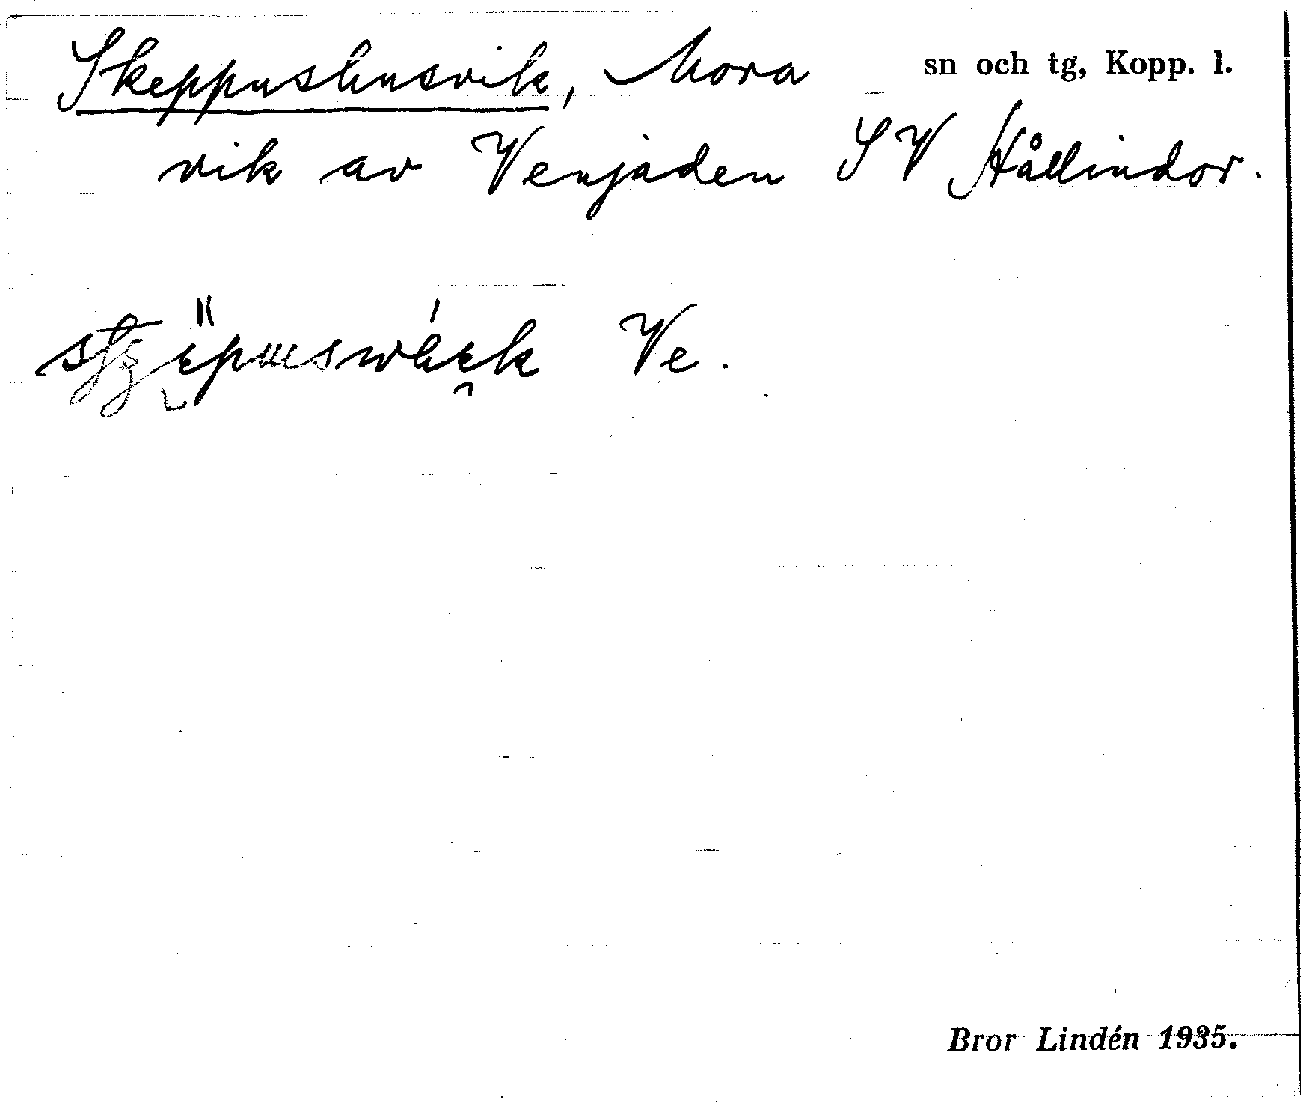 Skeppushusvik, Mora sn och tg, Kopp. l.
vik av Venjaden SV Hållindor.
Ve.
Bror Lindén 1935.